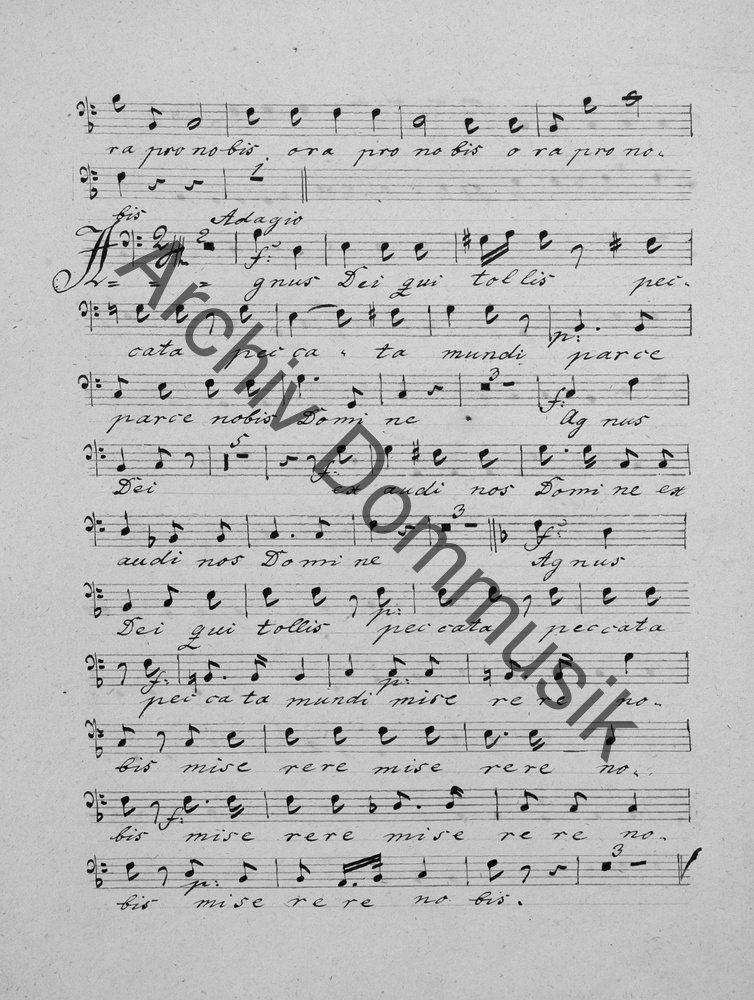 ra pro nobis ora pro nobis ora pro no-
1.
bis Adagio
2 2 f:
A - - - gnus Dei qui tollis pec-
cata pecca - ta mundi parce
p:
3 f:
parce nobis Domine Agnus
5 f:
Dei ex audi nos Domine ex
3 f:
audi nos Domine Agnus
p:
Dei qui tollis peccata peccata
f: p:
peccata mundi mise rere no-
bis mise rere mise rere no-
f:
bis mise rere mise rere no-
p: 3
bis mise rere no bis.
Archiv Dommusik